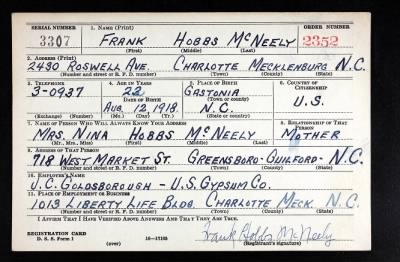 SERIAL NUMBER 1. NAME (Print) ORDER NUMBER
3307 FRANK HOBBS McNEELY 2352
(First) (Middle) (Last)
2. ADDRESS (Print)
2430 ROSWELL AVE. CHARLOTTE MECKLENBURG N.C.
(Number and street or R. F. D. number) (Town) (County) (State)
3. TELEPHONE 4. AGE IN YEARS 5. PLACE OF BIRTH 6. COUNTRY OF CITIZENSHIP
3-0937 22 GASTONIA
DATE OF BIRTH (Town or county) U.S.
AUG. 12, 1918. N.C.
(Exchange) (Number) (Mo.) (Day) (Yr.) (State or country)
7. NAME OF PERSON WHO WILL ALWAYS KNOW YOUR ADDRESS 8. RELATIONSHIP OF THAT PERSON
MRS. NINA HOBBS McNEELY MOTHER
(Mr., Mrs., Miss) (First) (Middle) (Last)
9. ADDRESS OF THAT PERSON
718 WEST MARKET ST. GREENSBORO-GUILFORD-N.C.
(Number and street or R. F. D. number) (Town) (County) (State)
10. EMPLOYER'S NAME
J.C. GOLDSBOROUGH - U.S. GYPSUM CO.
11. PLACE OF EMPLOYMENT OR BUSINESS
1013 LIBERTY LIFE BLDG. CHARLOTTE MECK. N.C.
(Number and street or R. F. D. number) (Town) (County) (State)
I AFFIRM THAT I HAVE VERIFIED ABOVE ANSWERS AND THAT THEY ARE TRUE.
REGISTRATION CARD
D. S. S. Form 1 (over) 16-17105 Frank Hobbs McNeely
(Registrant's signature)